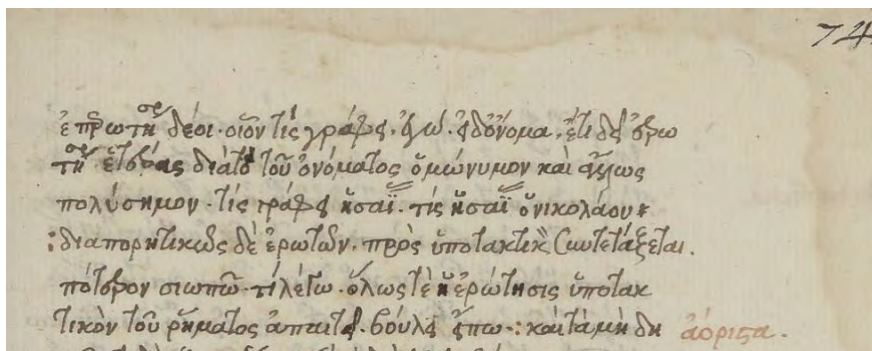 74
δέοι · οἷον τίς γράφει · ἐγώ · εἰ δ᾽ ὄνομα, ἔτι δεῖ ἐρω
ἑτέρας διὰ τὸ τοῦ ὀνόματος ὁμώνυμον καὶ ἄλλως
πολύσημον · τίς γράφει ἡσαΐ · τίς ἡσαΐ ὁ νικολάου
: διαπορητικῶς δὲ ἐρωτῶν · πρὸς ὑποτακτικὸν συντετάξεται.
πότερον σιωπῶ · τί λέγω · ὅλως τὲ ἡ ἐρώτησις ὑποτακ
τικὸν τοῦ ῥήματος ἀπαιτεῖ. βούλει εἴπω · : καὶ τὰ μὴ δὴ ἀόριστα.